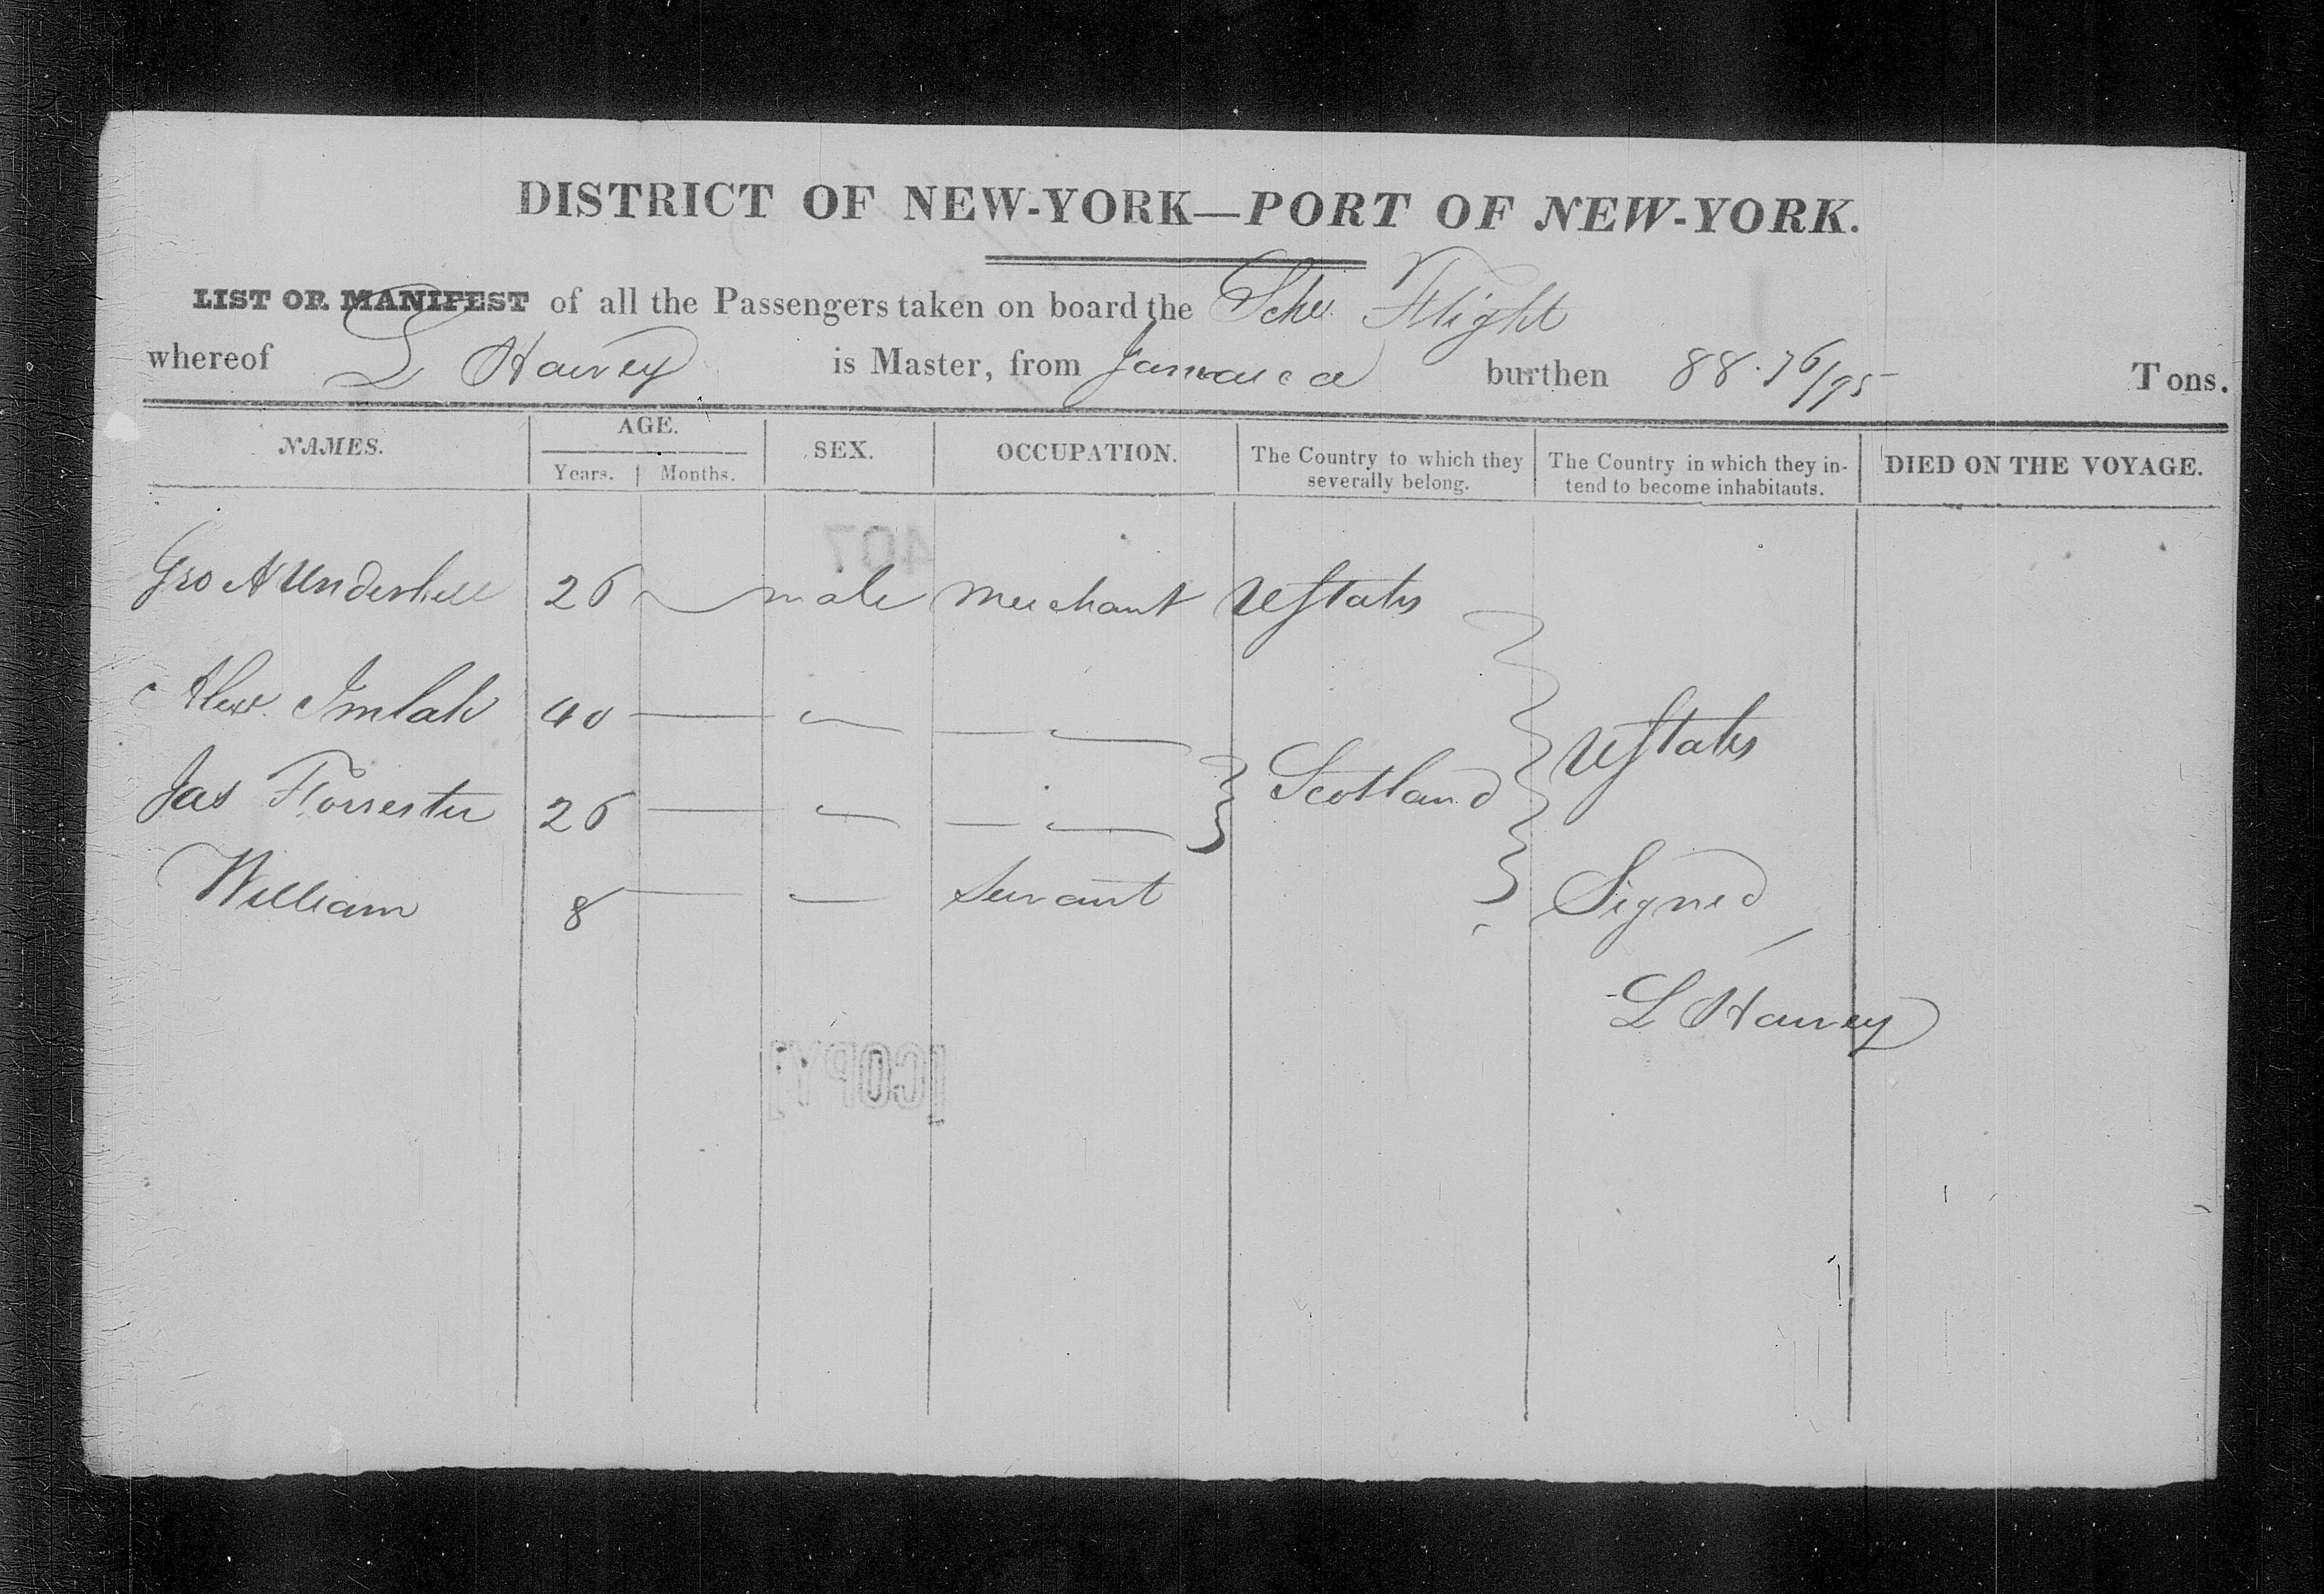 DISTRICT OF NEW-YORK—PORT OF NEW-YORK.
LIST OR MANIFEST of all the Passengers taken on board the Schr. Flight
whereof L Harvey is Master, from Jamaica burthen 88. 76/95 Tons.
NAMES. AGE. SEX. OCCUPATION. The Country to which they severally belong. The Country in which they intend to become inhabitants. DIED ON THE VOYAGE.
Years. Months.
407
Geo A Underhill 26 male Merchant UStates
Alexr. Imlah 40 — — — —
UStates
Jas Forrester 26 — — — — Scotland
William 8 — — Servant
Signed
L Harvey
[COPY]